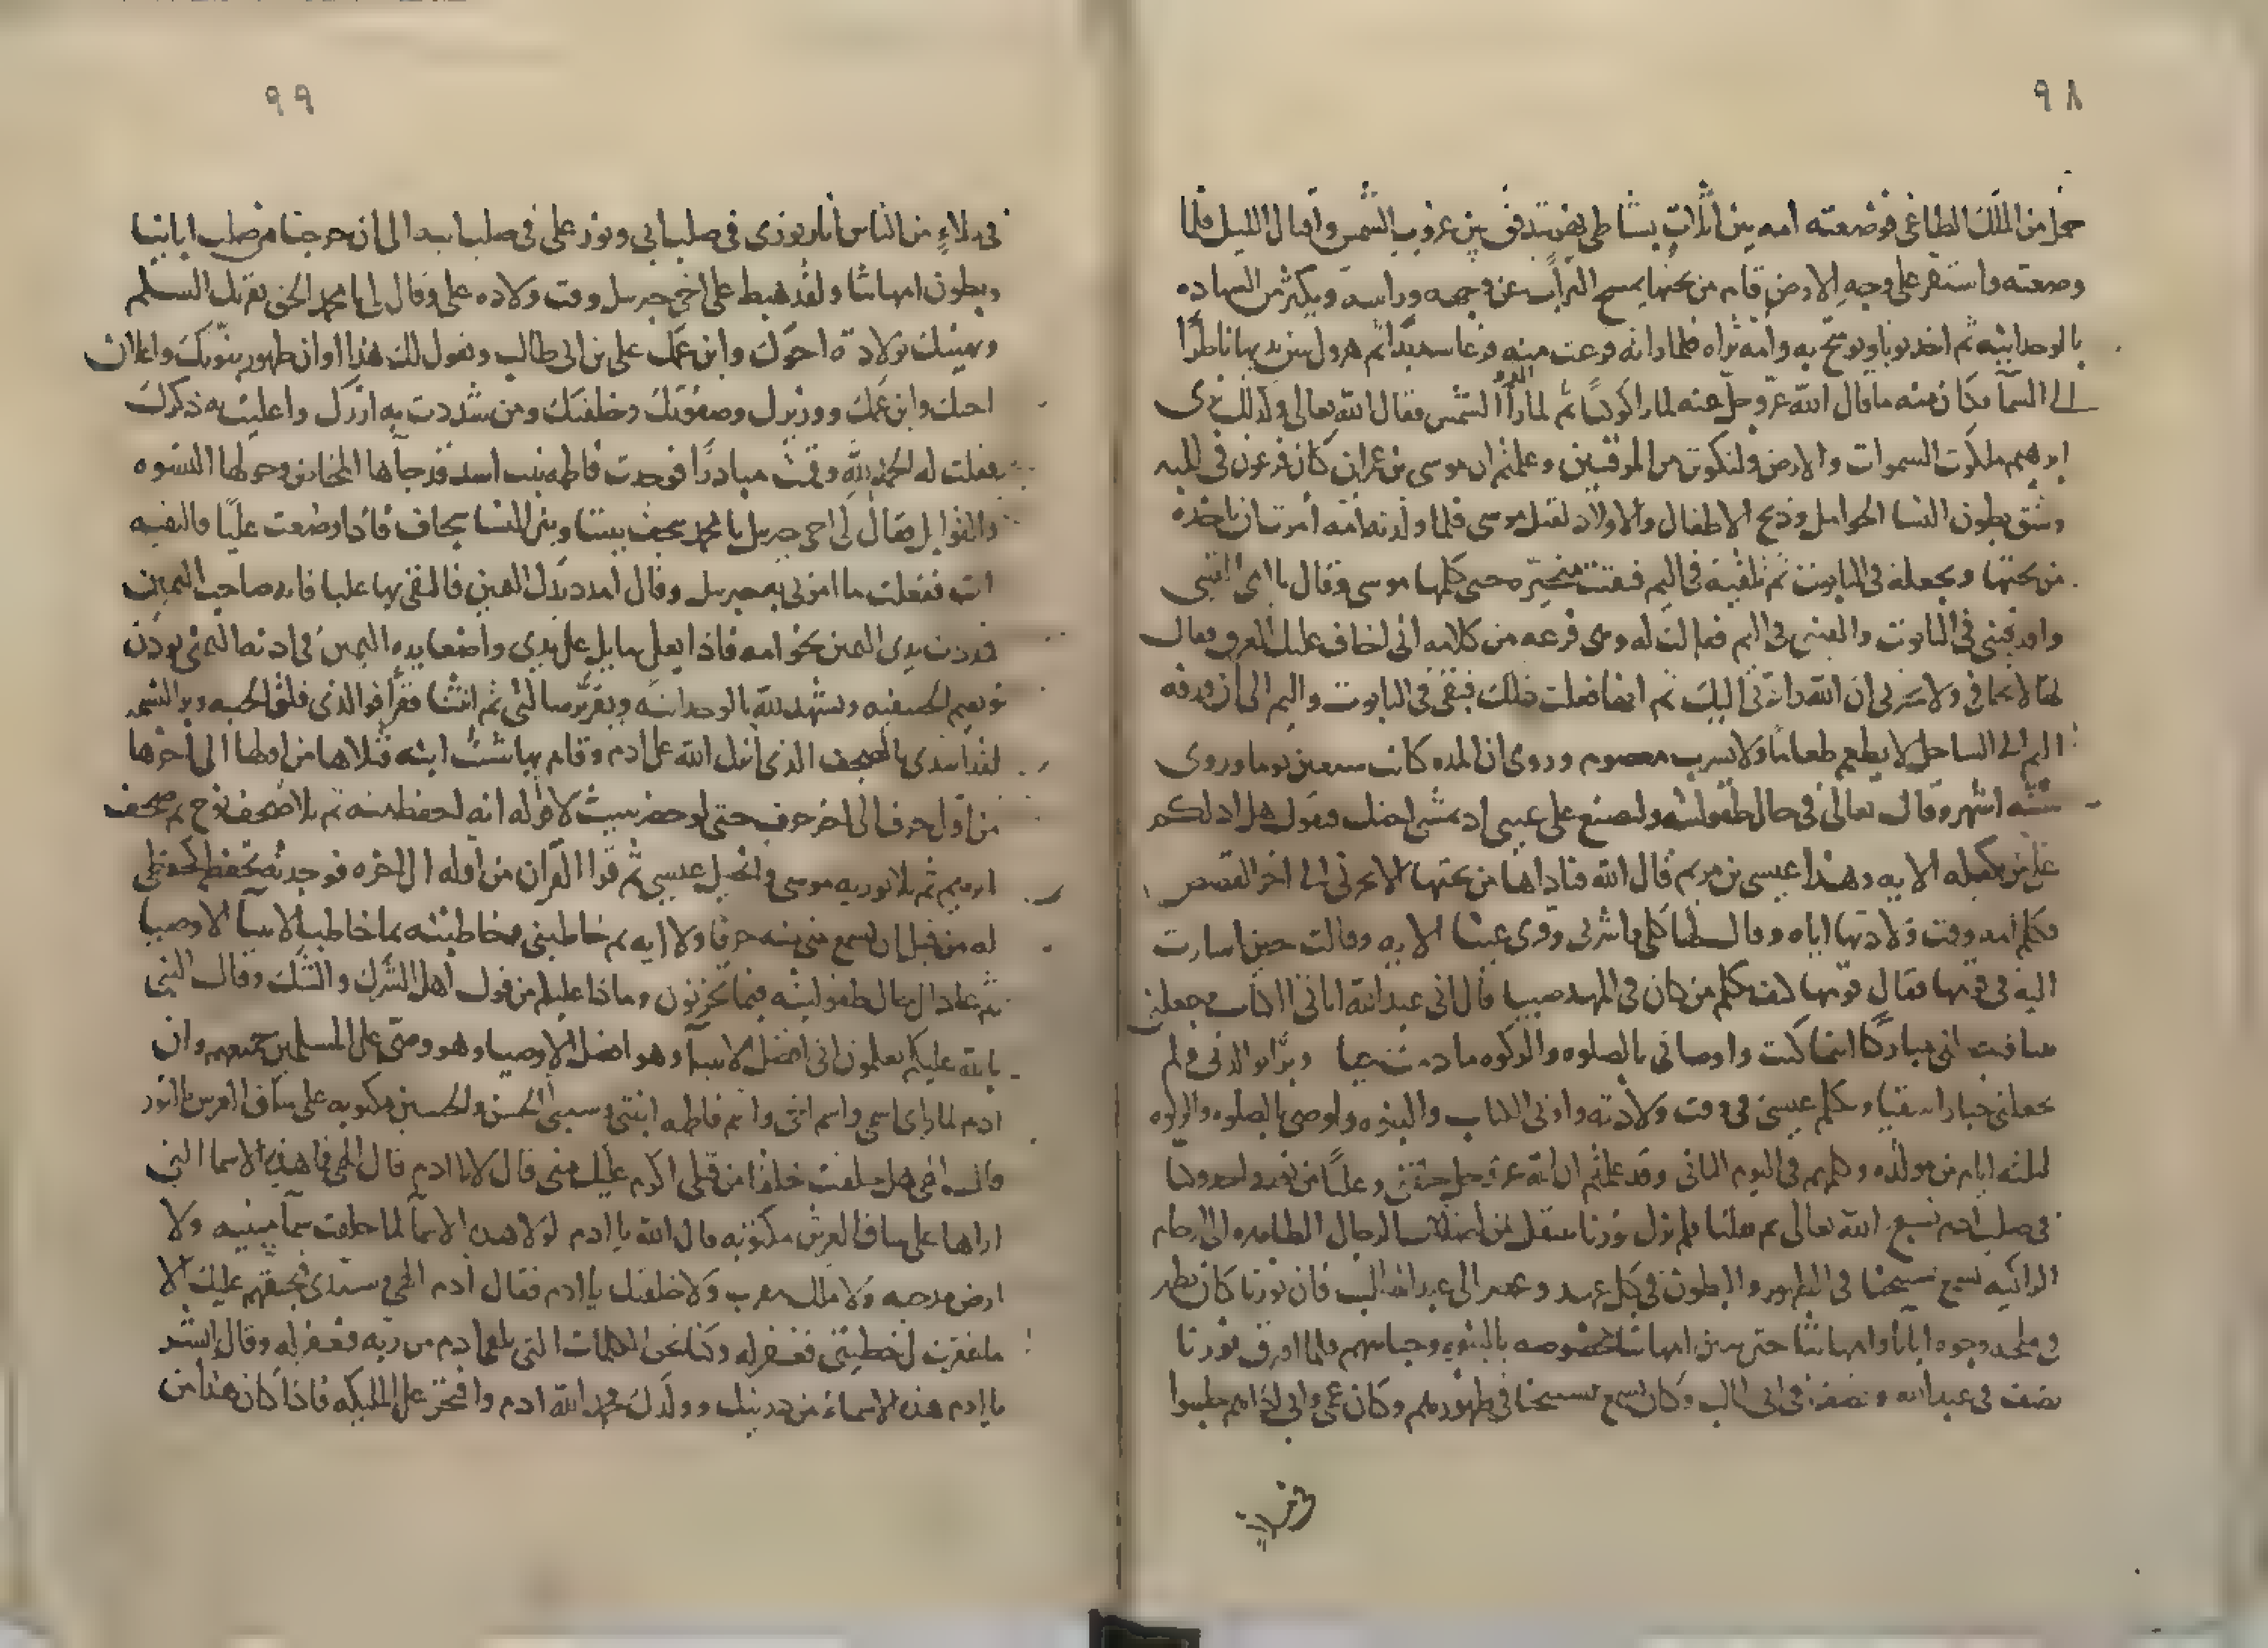 ٩٨
حمل من الملك الطاغي فوضعته امه بين اثلاث بشاطي نهر يتدفق بين غروب الشمس واقبال الليل فلما
وضعته واستقر على وجه الارض قام من تحتها يمسح التراب عن وجهه وراسه ويكثر من الشهاده
بالوحدانيه ثم اخذ ثوبا وتوشح به وامه تراه فلما راته فزعت منه فزعا شديدا ثم هرول بين يديها ناظرا
الى السما فكان منه ما قال الله عز وجل عنه لما راا كوكبا ثم لما راا الشمس فقال الله تعالى وكذلك نرى
ابرهيم ملكوت السموات والارض وليكون من الموقنين وعلمتم ان موسى بن عمران كان فرعون في طلبه
وشق بطون النسا الحوامل وذبح الاطفال والاولاد لقتل موسى فلما ولدته امه امرت ان تاخذه
من تحتها وتجعله في التابوت ثم تلقيه في اليم فبقت متحيره حتى كلمها موسى وقال يا امي اقذفيني
في التابوت والقيني في اليم فقالت له وهي فزعه من كلامه اني اخاف عليك الغرق فقال
لها لا تخافي ولا تحزني ان الله رادني اليك ثم انها فعلت ذلك فبقى في التابوت واليم الى ان قذفه
اليم الى الساحل لا يطعم طعاما ولا يشرب معصوم وروى ان المده كانت سبعين يوما وروى
سته اشهر وقال تعالى في حال طفوليته ولتصنع على عيني اذ تمشي اختك فتقول هل ادلكم
على من يكفله الايه وهذا عيسى بن مريم قال الله فناداها من تحتها الا تحزني الى اخر القصص
فكلم امه وقت ولادتها اياه وقال لها كلي واشربي وقري عينا الايه وقالت حين اشارت
اليه في قومها فقال قومها كيف نكلم من كان في المهد صبيا قال اني عبد الله اتاني الكتاب وجعلني
مباركا اينما كنت واوصاني بالصلوه والزكوه ما دمت حيا وبرا بوالدتي ولم
يجعلني جبارا شقيا وتكلم عيسى في وقت ولادته واوتي الكتاب والنبوه واوصي بالصلوه والزكوه
لثلثه ايام من مولده وكلمهم في اليوم الثاني وقد علمتم ان الله عز وجل خلقني وعليا من نور واحد وكنا
في صلب ادم نسبح الله تعالى ثم نقلنا فلم يزل نورنا ينتقل من اصلاب الرجال الطاهره الى الارحام
الزاكيه يسمع تسبيحنا في الظهور والبطون في كل عهد وعصر الى عبد المطلب فان نورنا كان يظهر
في وجوه ابائنا وامهاتنا حتى تبين امهاتنا مخصوصه بالنبوه وجباههم فلما افترق نورنا
نصف في عبد الله ونصف في ابي طالب وكان يسمع تسبيحنا في ظهورهم وكان عمي وابي اذا هم جلسوا
٩٩
في ملاء من الناس انار نوري في صلب ابي ونور علي في صلب ابيه الى ان خرجنا من صلب ابائنا
وبطون امهاتنا ولقد هبط على اخي جبرئيل وقت ولاده علي وقال لي يا محمد الحق يقريك السلم
ويهنيك بولادة اخوك وابن عمك علي بن ابي طالب ويقول لك هذا اوان ظهور نبوتك واعلان
اخيك وابن عمك ووزيرك وصفوتك وخليفتك ومن شددت به ازرك واعليت به ذكرك
فقلت له الحمد لله وقمت مبادرا فوجدت فاطمه بنت اسد قد جآها المخاض وحولها النسوه
والقوابل فقال لي اخي جبرئيل يا محمد سجف بيننا وبين النسا سجاف فاذا وضعت عليا فالتقيه
انت ففعلت ما امرني به جبرئيل وقال امدد يدك اليمين فالتقي بها عليا فانه صاحب اليمين
فمددت يدي اليمين نحو امه فاذا بعلي مايل على يدي واضعا يده اليمين في اذنه اليمنى يوذن
ويقيم الحنيفيه ويشهد لله بالوحدانيه ويقر برسالتي ثم انثنا فقرأ فوالذي فلق الحبه وبرا النسمه
لقد ابتدى بالصحف الذي انزل الله على ادم وقام بها شيث ابنه فتلاها من اولها الى اخرها
من اول حرف الى اخر حرف حتى لو حضر شيث لاقر له انه احفظ منه ثم تلا صحف نوح ثم صحف
ابرهيم ثم تلا توريه موسى وانجيل عيسى ثم قرا القران من اوله الى اخره فوجدته يحفظ كحفظي
له من قبل ان يسمع مني منه حرفا ولا ايه ثم خاطبني وخاطبته بما خاطب الانبيا الاوصيا
ثم عاد الى حال طفوليته فبما تحزنون وماذا عليكم من قول اهل الشرك والشك وقال النبي
بالله عليكم تعلمون اني افضل الانبيا وهو افضل الاوصيا وهو وصيي على المسلمين جميعهم وان
ادم لما راى اسمي واسم اخي واسم فاطمه ابنتي وسبطي الحسن والحسين مكتوبه على ساق العرش بالنور
قال الهي هل خلقت خلقا من قبلي اكرم عليك مني قال لا يا ادم قال الهي فما هذه الاسما التي
اراها على ساق العرش مكتوبه قال الله يا ادم لولا هذه الاسمآ لما خلقت سمآ مبنيه ولا
ارض مدحيه ولا ملك مقرب ولا خلقتك يا ادم فقال ادم الهي وسيدي فبحقهم عليك الا
ما غفرت لي خطيتي فغفر له وكنا نحن الكلمات التي تلقى ادم من ربه فغفر له وقال ابشر
يا ادم هذه الاسماء من ذريتك وولدك فحمد الله ادم وافتخر على المليكه فاذا كان هذا من